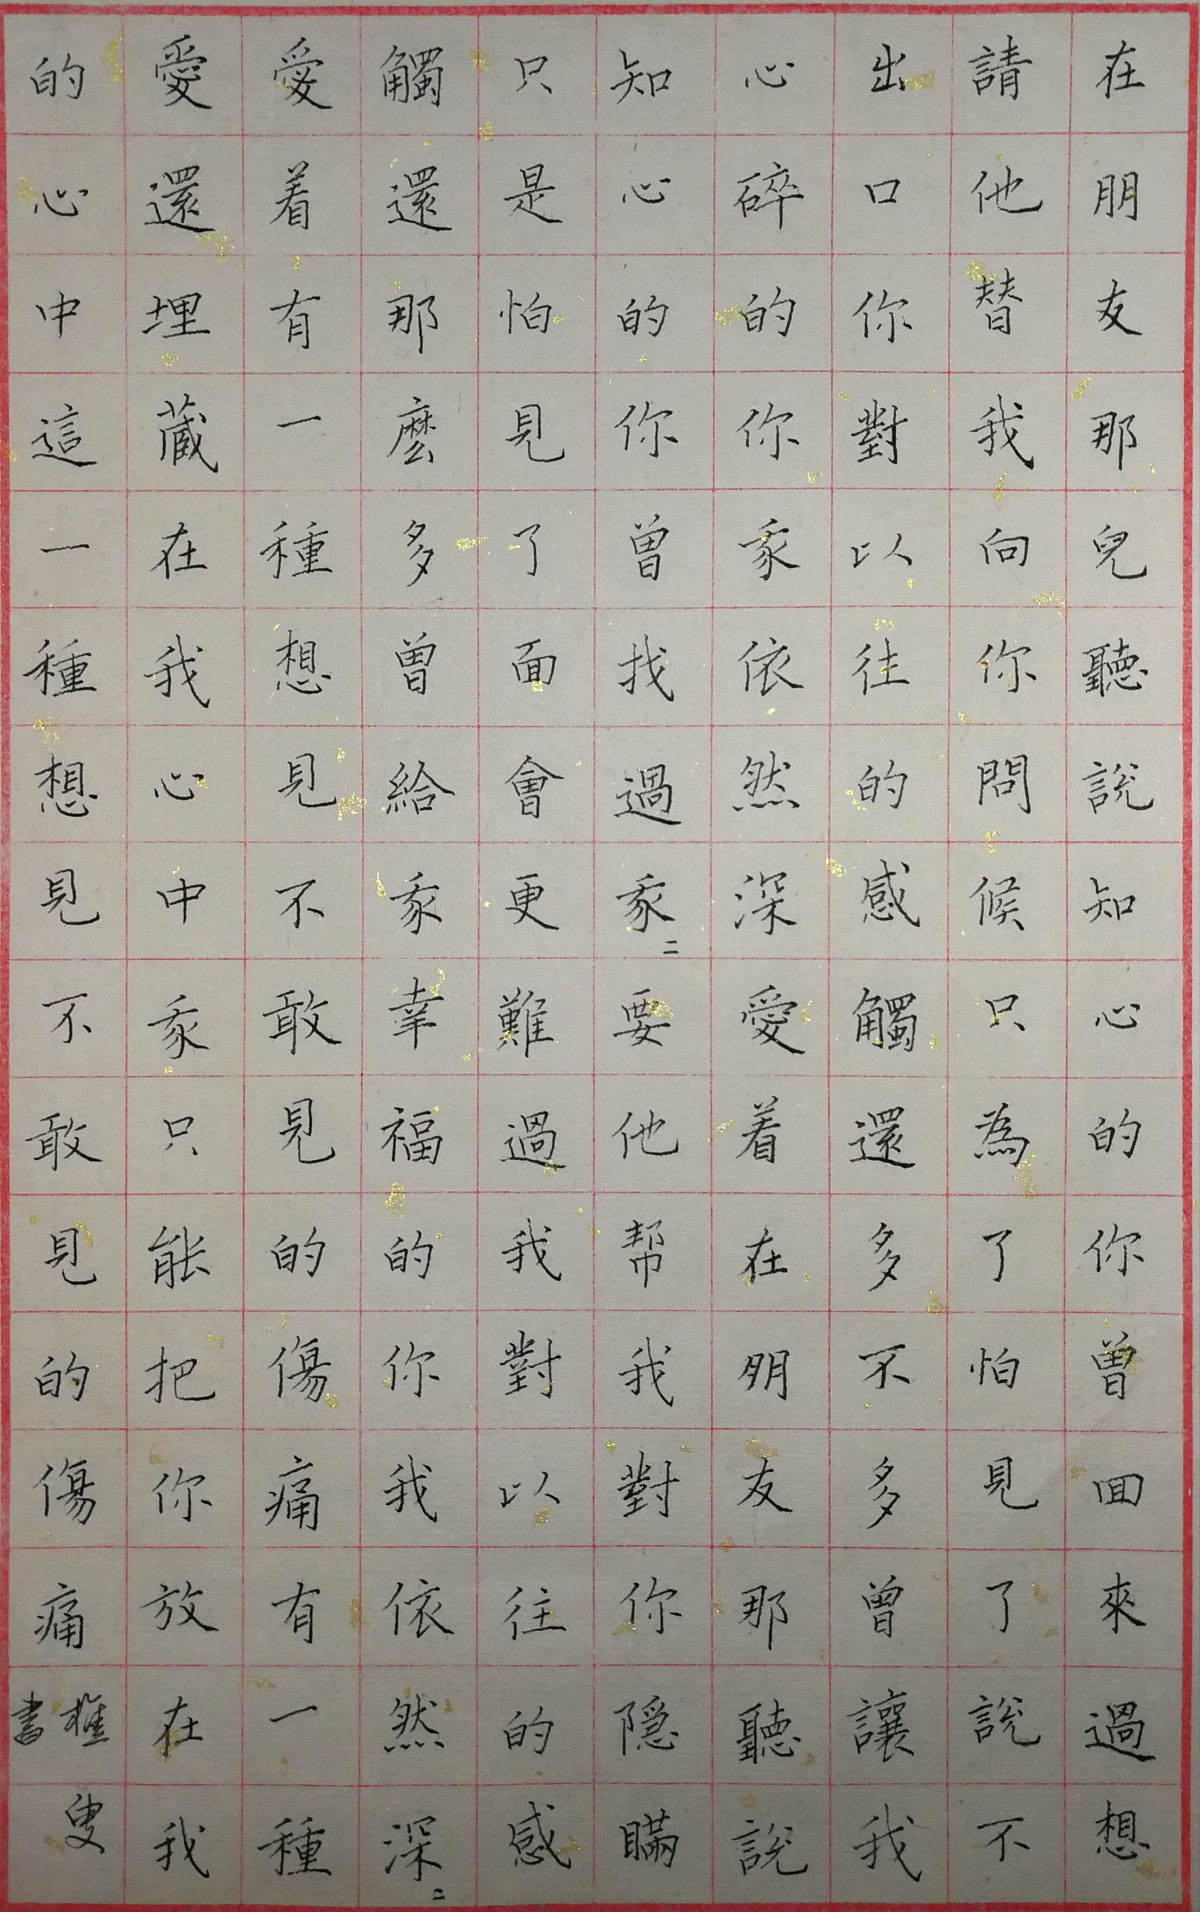 在朋友那兒聽說知心的你曾回來過想
請他替我向你問候只為了怕見了說不
出口你對以往的感觸還多不多曾讓我
心碎的你我依然深愛着在朋友那聽說
知心的你曾找過我〻要他帮我對你隐瞞
只是怕見了面會更難過我對以往的感
觸還那麼多曾給我幸福的你我依然深〻
愛着有一種想見不敢見的傷痛有一種
愛還埋藏在我心中我只能把你放在我
的心中這一種想見不敢見的傷痛
樵叟
書